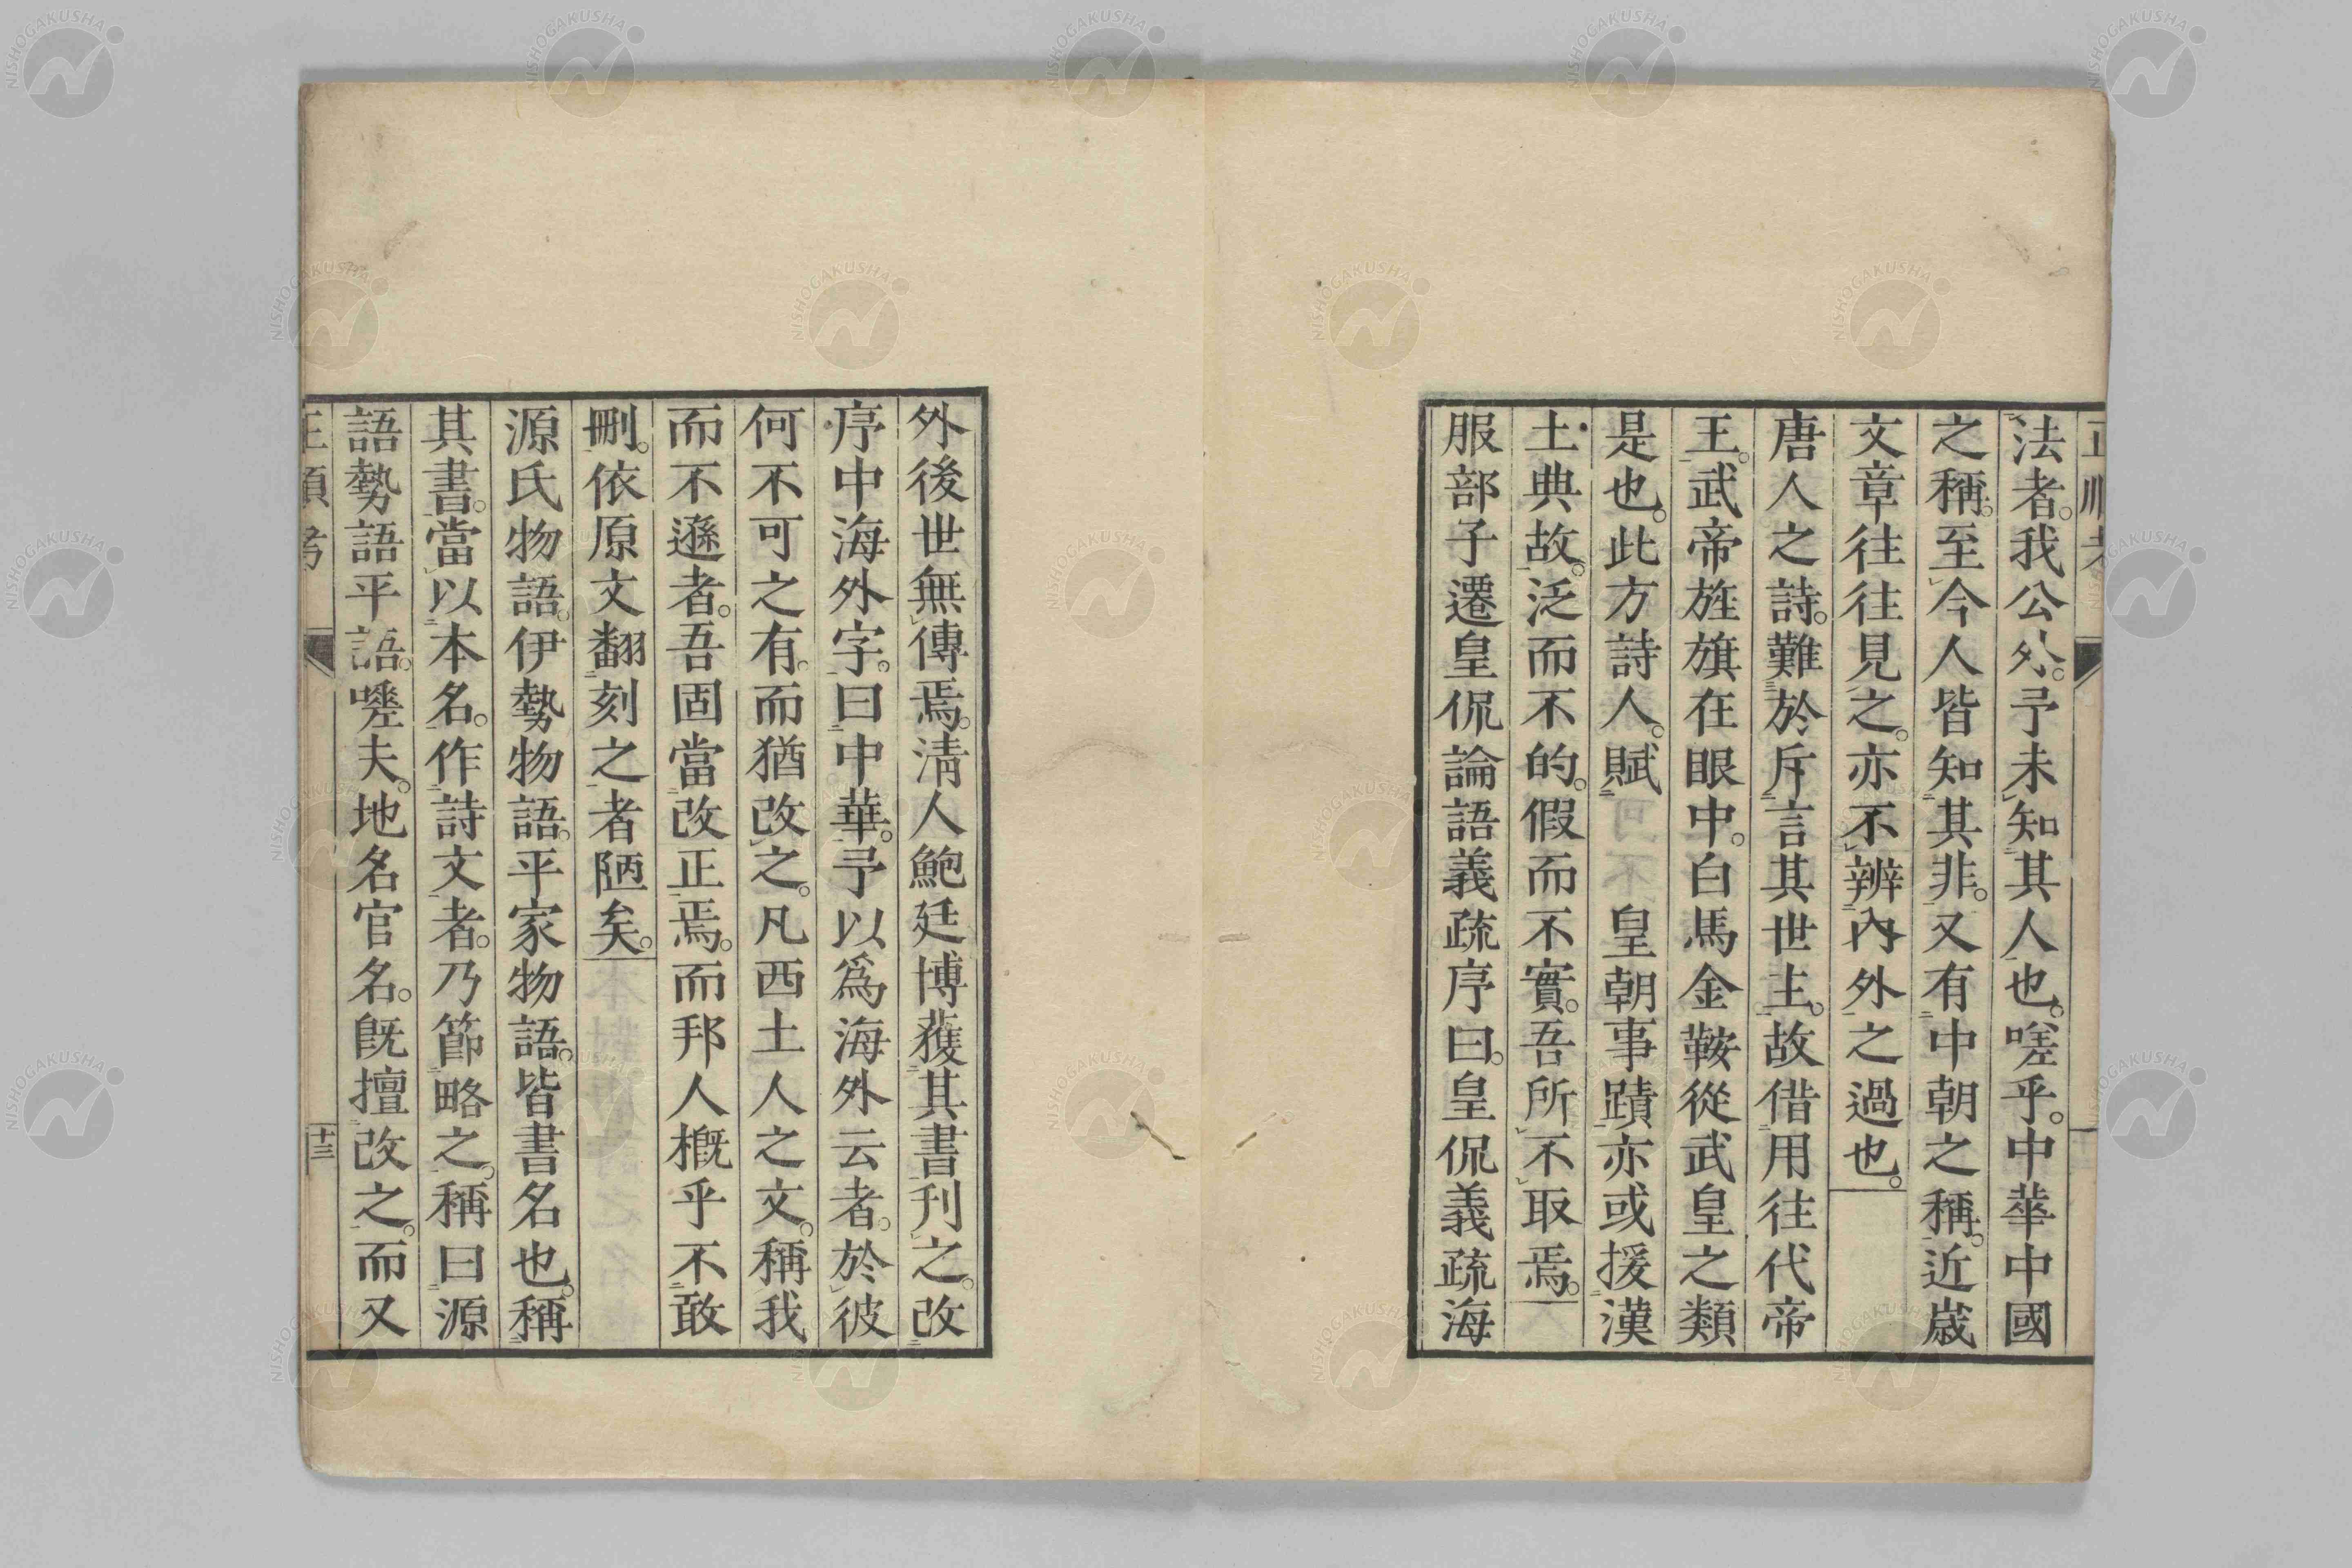 法者。我公外。予未知其人也。嗟乎。中華中國
之稱。至今人皆知其非。又有中朝之稱。近歲
文章往往見之。亦不辨內外之過也。
唐人之詩。難於斥言其世主。故借用往代帝
王。武帝旌旗在眼中。白馬金鞍從武皇之類
是也。此方詩人。賦 皇朝事蹟亦或援漢
土典故。泛而不的。假而不實。吾所不取焉。
服部子遷皇侃論語義疏序曰。皇侃義疏海
外後世無傳焉。淸人鮑廷博獲其書刊之。改
序中海外字。曰中華。予以爲海外云者。於彼
何不可之有。而猶改之。凡西土人之文。稱我
而不遜者。吾固當改正焉。而邦人槪乎不敢
刪。依原文翻刻之者陋矣。
源氏物語。伊勢物語。平家物語。皆書名也。稱
其書。當以本名。作詩文者。乃節略之。稱曰源
語勢語平語。嗟夫。地名官名。旣擅改之。而又
十三
NISHOGAKUSHA